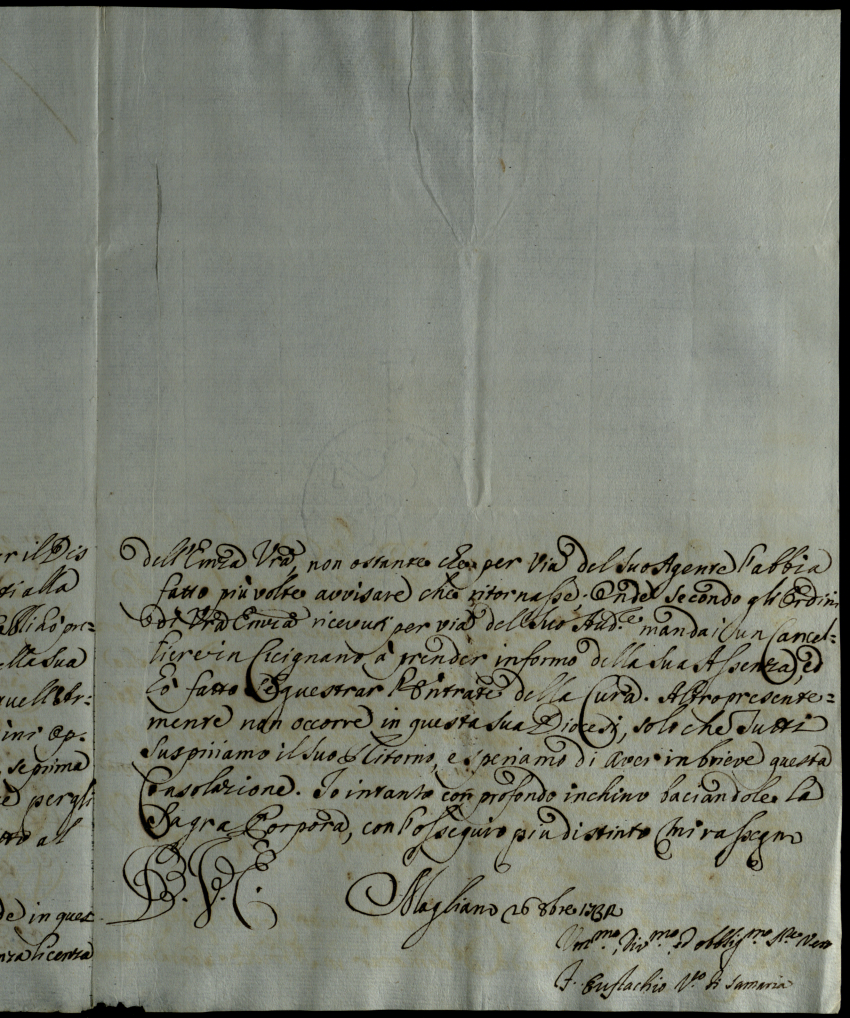 er il Dis
ti alla
lla sua
quell'Or-
se prima
è per gli
tto al
de in ques
nza licenza
dell'Emza Vrã, non ostante che per via del suo Agente l'abbia
fatto più volte avvisare che ritornasse. Onde secondo gli Ordini
di Vrã Emza ricevuti per via del suo Aud.e mandai un Cancel=
liere in Cicignano à prender informo della sua Assenza, ed
hò fatto sequestrar l'Entrate della Cura. Altro presente=
mente non occorre in questa sua Diocesi, solo che tutti
suspiriamo il suo Ritorno, e speriamo di aver in brieve questa
Consolazione. Io intanto con profondo inchino baciandole la
Sagra Porpora, con l'ossequio più distinto mi rassegno
D. V. E.
Magliano 26 8bre 1732
Um.mo, Div.mo, ed obblig.mo Sre Vero
F. Eustachio V.o di Samaria